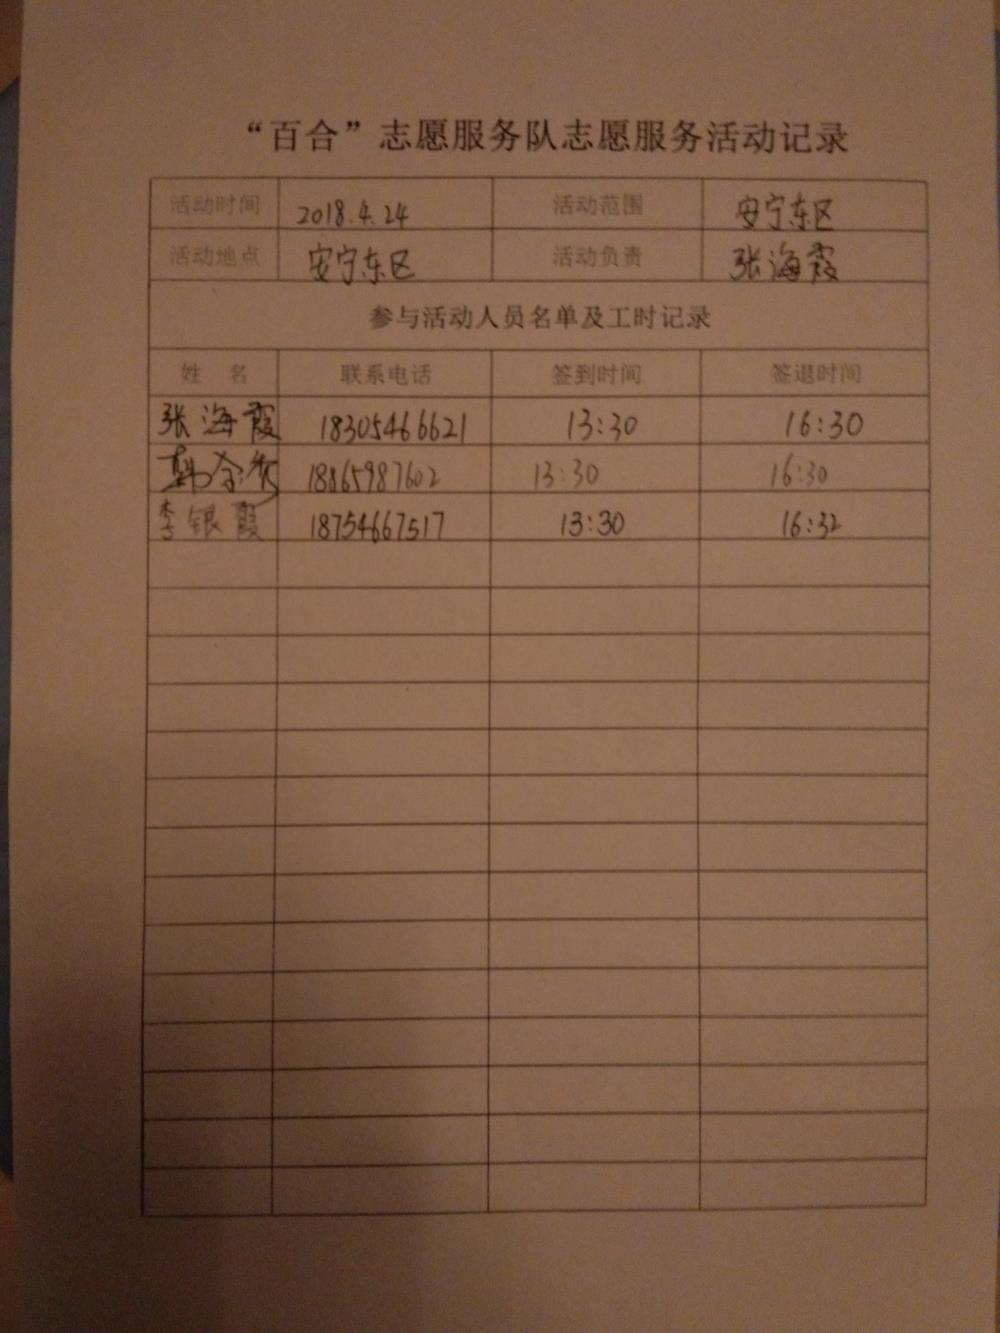 “百合”志愿服务队志愿服务活动记录
活动时间 2018.4.24 活动范围 安宁东区
活动地点 安宁东区 活动负责 张海霞
参与活动人员名单及工时记录
姓 名 联系电话 签到时间 签退时间
张海霞 18305466621 13:30 16:30
韩 18865987602 13:30 16:30
李银霞 18754667517 13:30 16:32